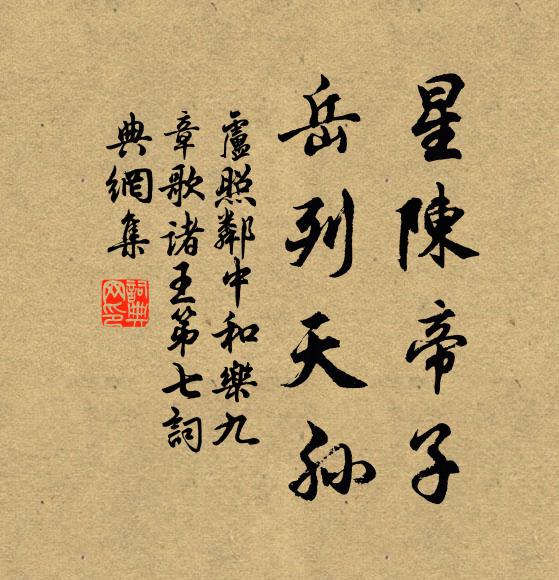 星陳帝子
岳列天孫
盧照鄰中和樂九
章歌諸王第七詞
典網集
詞典網印